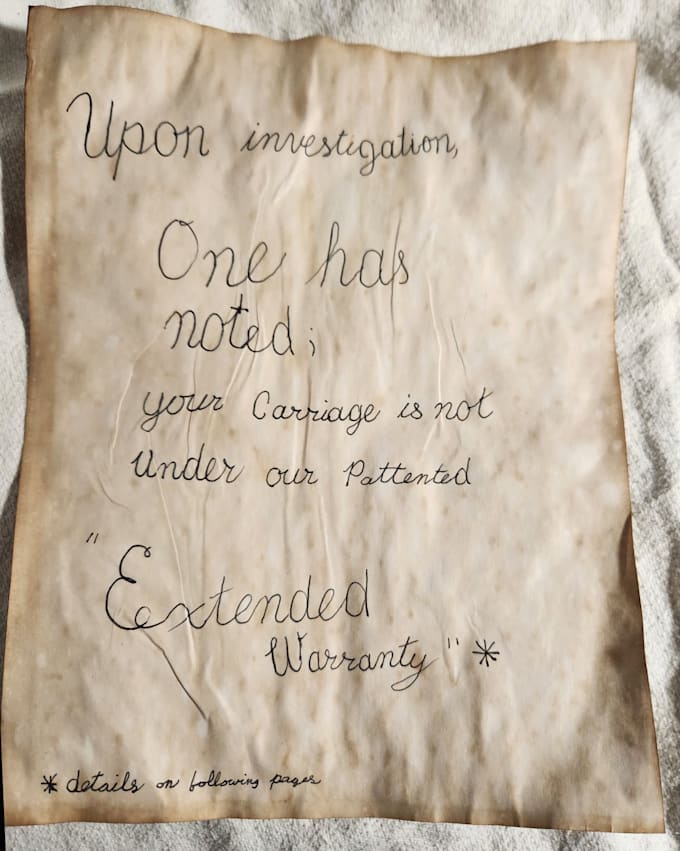 Upon investigation,
One has
noted;
your Carriage is not
Under our Pattented
"Extended
Warranty" *
* details on following pages